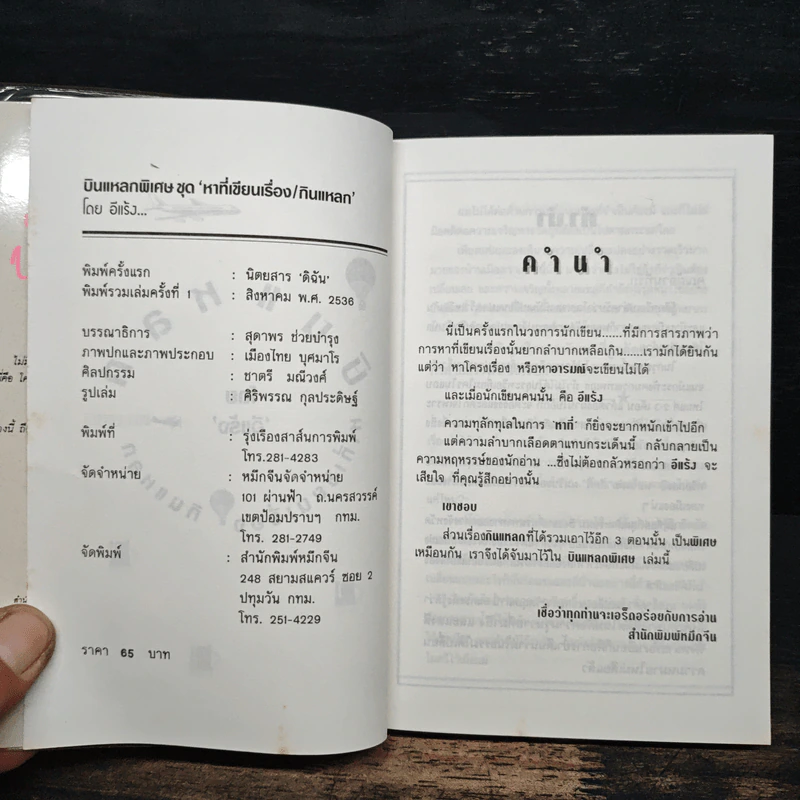 บินแหลกพิเศษ ชุด 'หาที่เขียนเรื่อง/กินแหลก'
โดย อีแร้ง...
พิมพ์ครั้งแรก : นิตยสาร 'ดิฉัน'
พิมพ์รวมเล่มครั้งที่ 1 : สิงหาคม พ.ศ. 2536
บรรณาธิการ : สุดาพร ช่วยบำรุง
ภาพปกและภาพประกอบ : เมืองไทย บุศมาโร
ศิลปกรรม : ชาตรี มณีวงศ์
รูปเล่ม : ศิริพรรณ กุลประดิษฐ์
พิมพ์ที่ : รุ่งเรืองสาส์นการพิมพ์
โทร.281-4283
จัดจำหน่าย : หมึกจีนจัดจำหน่าย
101 ผ่านฟ้า ถ.นครสวรรค์
เขตป้อมปราบฯ กทม.
โทร. 281-2749
จัดพิมพ์ : สำนักพิมพ์หมึกจีน
248 สยามสแควร์ ซอย 2
ปทุมวัน กทม.
โทร. 251-4229
ราคา 65 บาท
คำนำ
นี่เป็นครั้งแรกในวงการนักเขียน......ที่มีการสารภาพว่า
การหาที่เขียนเรื่องนั้นยากลำบากเหลือเกิน......เรามักได้ยินกัน
แต่ว่า หาโครงเรื่อง หรือหาอารมณ์จะเขียนไม่ได้
และเมื่อนักเขียนคนนั้น คือ อีแร้ง
ความทุลักทุเลในการ 'หาที่' ก็ยิ่งจะยากหนักเข้าไปอีก
แต่ความลำบากเลือดตาแทบกระเด็นนี้ กลับกลายเป็น
ความหฤหรรษ์ของนักอ่าน ...ซึ่งไม่ต้องกลัวหรอกว่า อีแร้ง จะ
เสียใจ ที่คุณรู้สึกอย่างนั้น
เขาชอบ
ส่วนเรื่องกินแหลกที่ได้รวมเอาไว้อีก 3 ตอนนั้น เป็นพิเศษ
เหมือนกัน เราจึงได้จับมาไว้ใน บินแหลกพิเศษ เล่มนี้
เชื่อว่าทุกท่านจะเอร็ดอร่อยกับการอ่าน
สำนักพิมพ์หมึกจีน